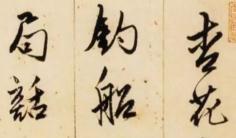 杏花
釣船
局話